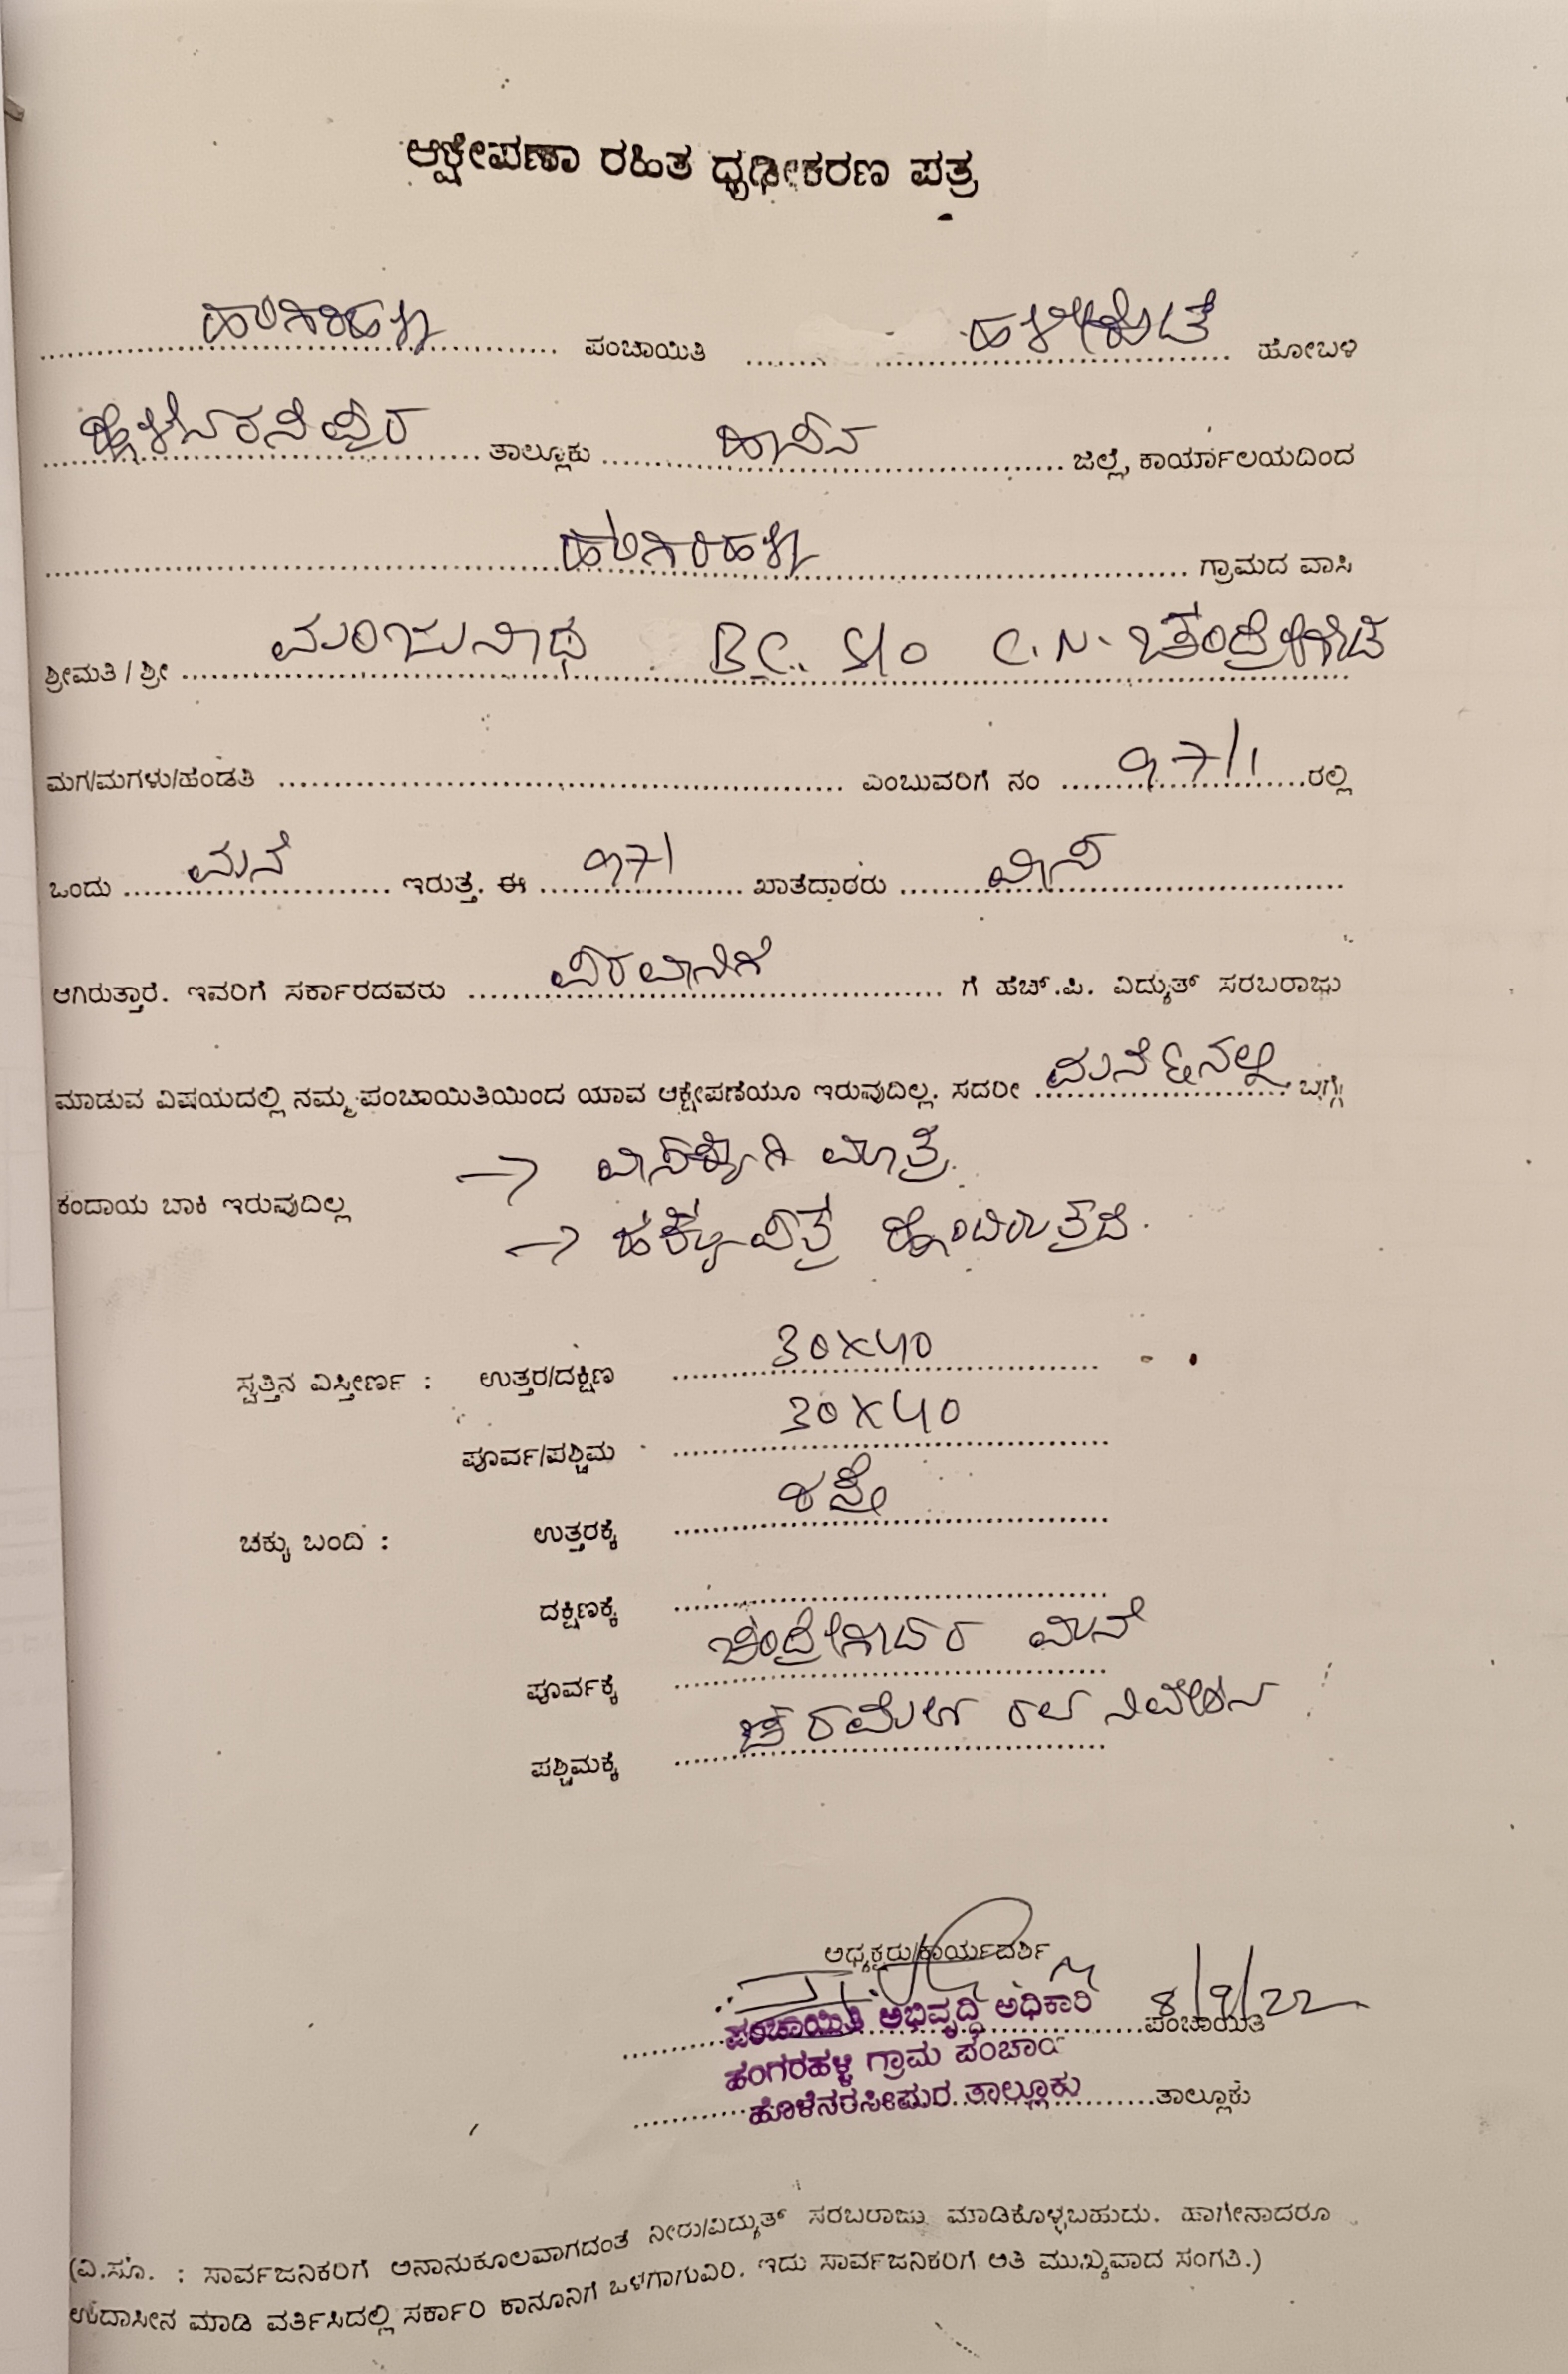 ಆಕ್ಷೇಪಣಾ ರಹಿತ ಧೃಢೀಕರಣ ಪತ್ರ
ಹಂಗರಹಳ್ಳಿ ಪಂಚಾಯಿತಿ ಹಳೇಕೋಟೆ ಹೋಬಳಿ
ಹೊಳೆನರಸೀಪುರ ತಾಲ್ಲೂಕು ಹಾಸನ ಜಿಲ್ಲೆ, ಕಾರ್ಯಾಲಯದಿಂದ
ಹಂಗರಹಳ್ಳಿ ಗ್ರಾಮದ ವಾಸಿ
ಶ್ರೀಮತಿ / ಶ್ರೀ ಮಂಜುನಾಥ B.C. S/o C.N. ಚಂದ್ರೇಗೌಡ
ಮಗ/ಮಗಳು/ಹೆಂಡತಿ ಎಂಬುವರಿಗೆ ನಂ 97/1 ರಲ್ಲಿ
ಒಂದು ಮನೆ ಇರುತ್ತೆ. ಈ 97/1 ಖಾತೆದಾರರು ವಾಸ
ಆಗಿರುತ್ತಾರೆ. ಇವರಿಗೆ ಸರ್ಕಾರದವರು ಪರವಾನಿಗೆ ಗೆ ಹೆಚ್.ಪಿ. ವಿದ್ಯುತ್ ಸರಬರಾಜು
ಮಾಡುವ ವಿಷಯದಲ್ಲಿ ನಮ್ಮ ಪಂಚಾಯಿತಿಯಿಂದ ಯಾವ ಆಕ್ಷೇಪಣೆಯೂ ಇರುವುದಿಲ್ಲ. ಸದರೀ ಬಗ್ಗೆ
→ ವಾಸಕ್ಕಾಗಿ ಮಾತ್ರ.
ಕಂದಾಯ ಬಾಕಿ ಇರುವುದಿಲ್ಲ
→ ಹಕ್ಕುಪತ್ರ ಹೊಂದಿರುತ್ತದೆ.
ಸ್ವತ್ತಿನ ವಿಸ್ತೀರ್ಣ : ಉತ್ತರ/ದಕ್ಷಿಣ 30X40
ಪೂರ್ವ/ಪಶ್ಚಿಮ 30X40
ಚಕ್ಕು ಬಂದಿ : ಉತ್ತರಕ್ಕೆ ರಸ್ತೇ
ದಕ್ಷಿಣಕ್ಕೆ
ಪೂರ್ವಕ್ಕೆ ಚಂದ್ರೇಗೌಡರ ಮನೆ
ಪಶ್ಚಿಮಕ್ಕೆ ನಿವೇಶನ
ಅಧ್ಯಕ್ಷರು/ಕಾರ್ಯದರ್ಶಿ
ಪಂಚಾಯಿತಿ ಅಭಿವೃದ್ಧಿ ಅಧಿಕಾರಿ 8/9/22
ಪಂಚಾಯಿತಿ
ಹಂಗರಹಳ್ಳಿ ಗ್ರಾಮ ಪಂಚಾಯ
ಹೊಳೆನರಸೀಪುರ ತಾಲ್ಲೂಕು ತಾಲ್ಲೂಕು
(ವಿ.ಸೂ. : ಸಾರ್ವಜನಿಕರಿಗೆ ಅನಾನುಕೂಲವಾಗದಂತೆ ನೀರು/ವಿದ್ಯುತ್ ಸರಬರಾಜು ಮಾಡಿಕೊಳ್ಳಬಹುದು. ಹಾಗೇನಾದರೂ
ಉದಾಸೀನ ಮಾಡಿ ವರ್ತಿಸಿದಲ್ಲಿ ಸರ್ಕಾರಿ ಕಾನೂನಿಗೆ ಒಳಗಾಗುವಿರಿ. ಇದು ಸಾರ್ವಜನಿಕರಿಗೆ ಅತಿ ಮುಖ್ಯವಾದ ಸಂಗತಿ.)